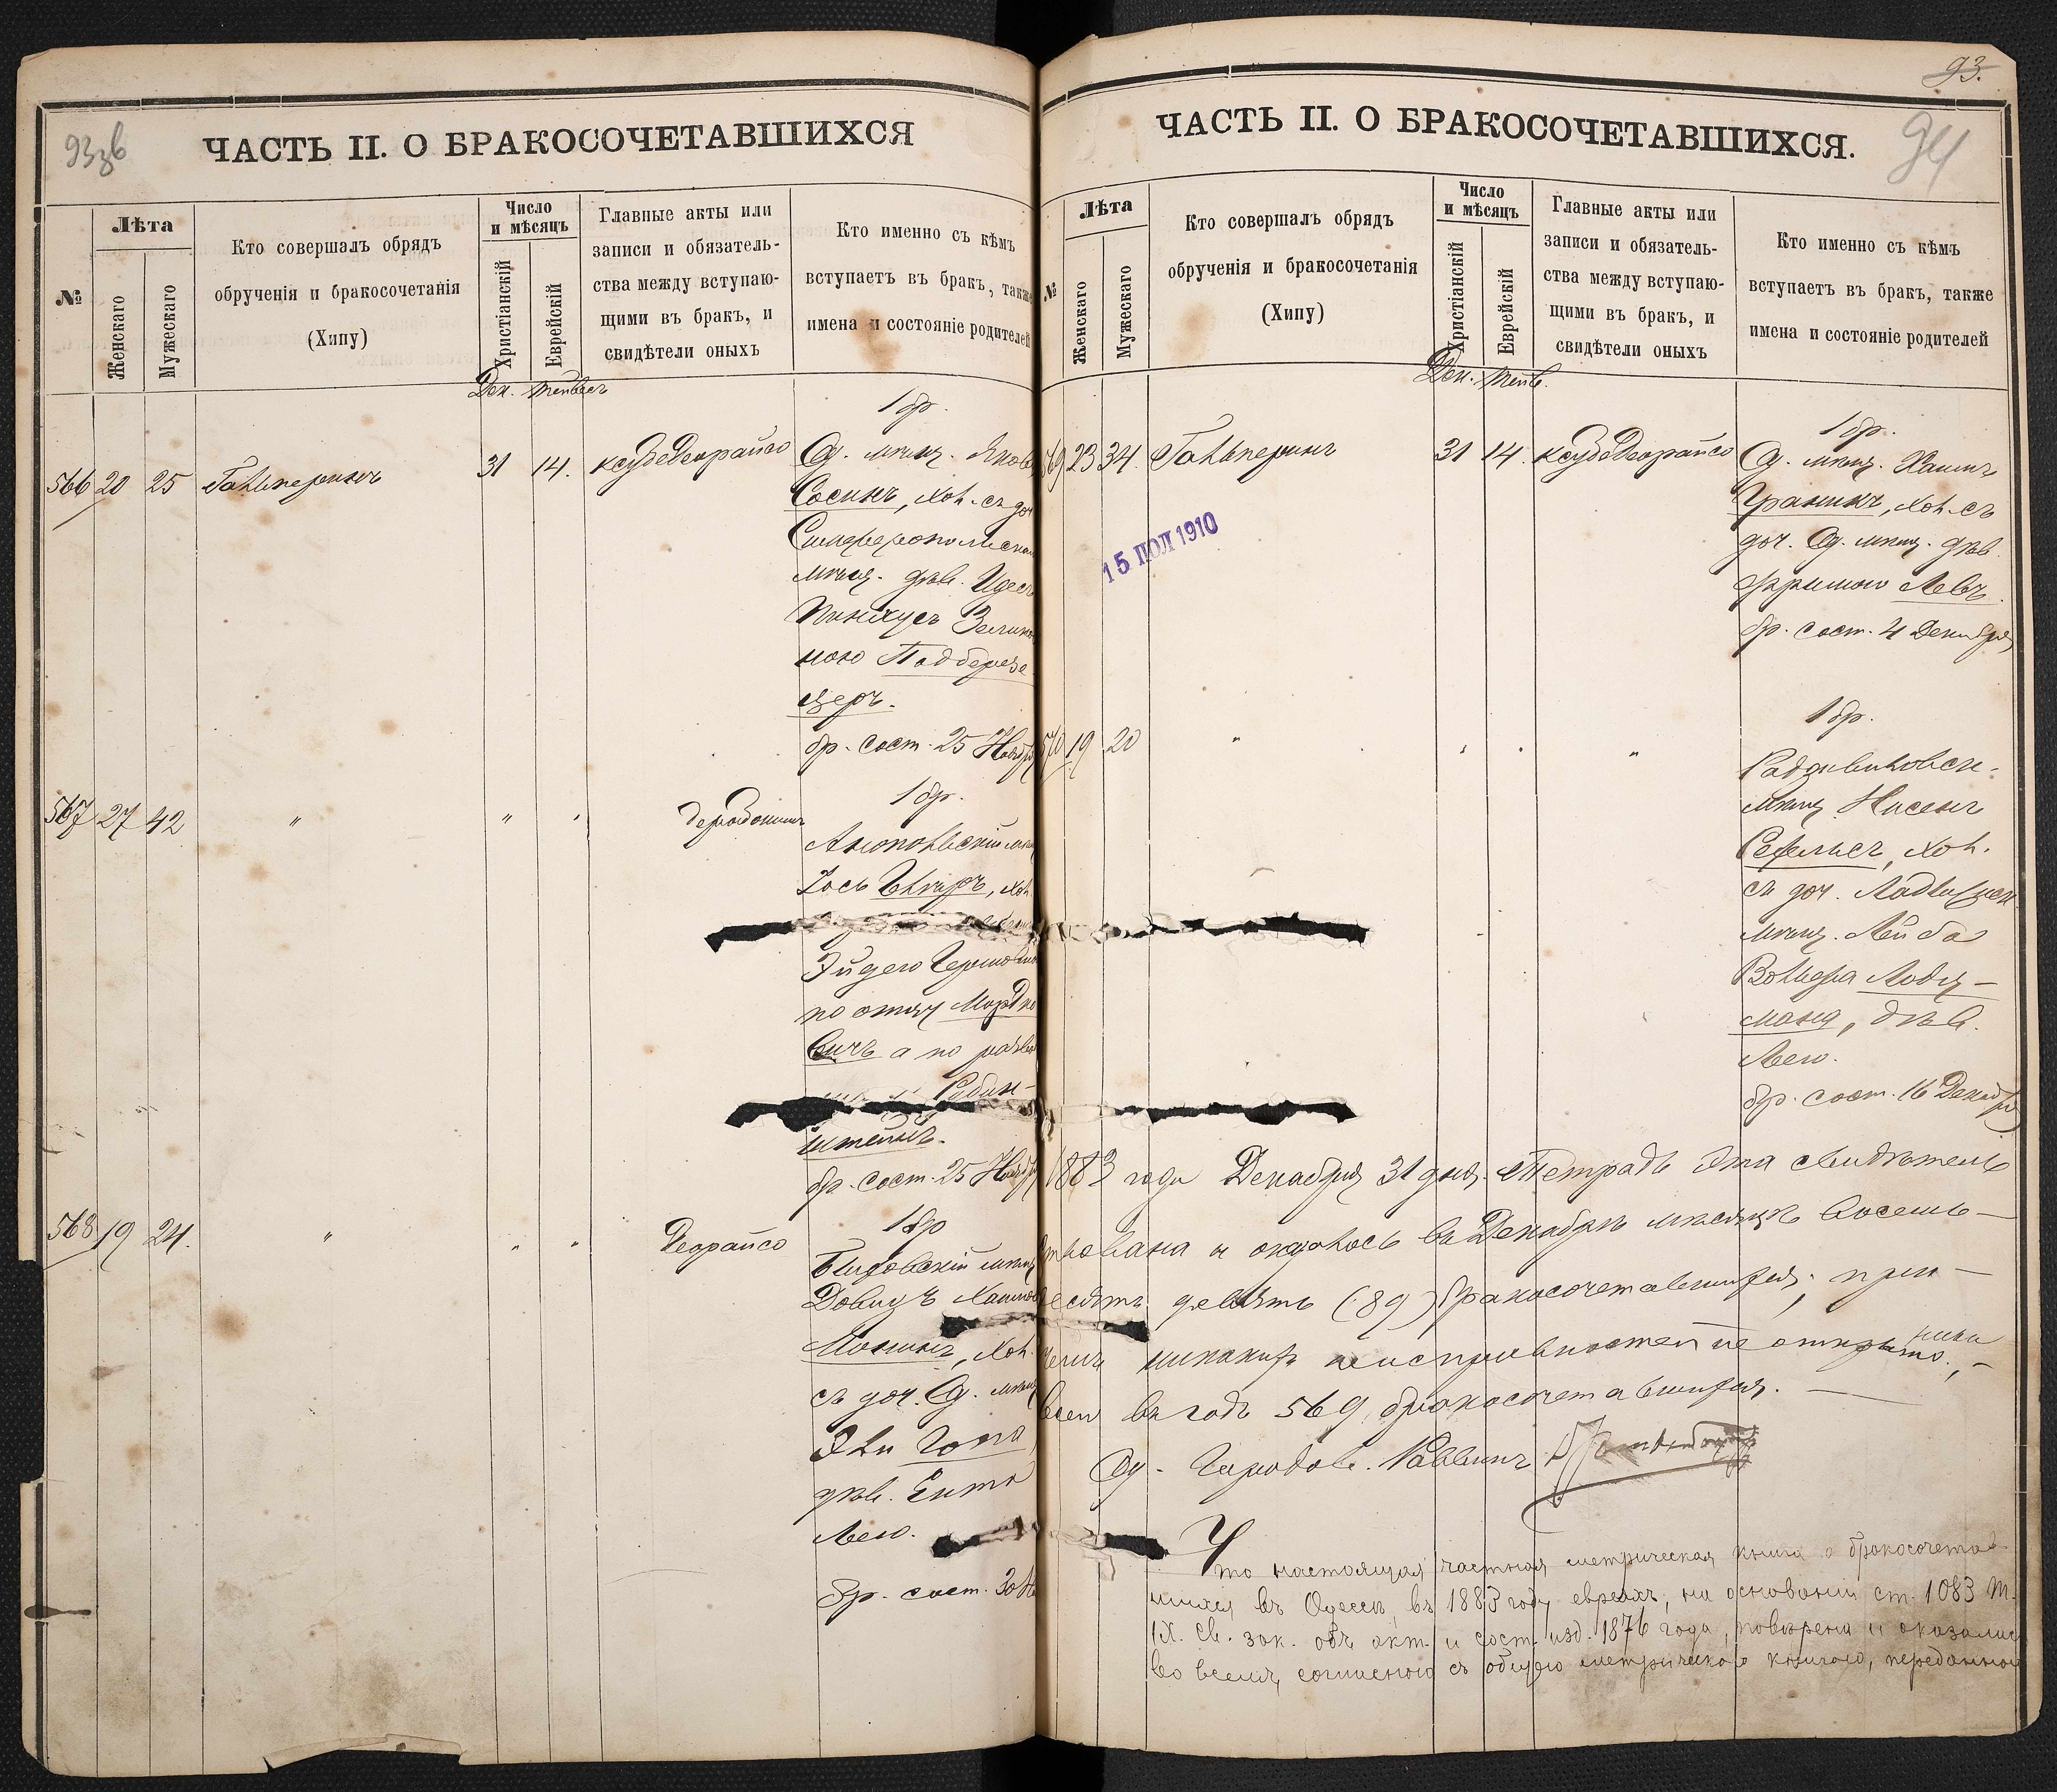 93зв
ЧАСТЬ II. О БРАКОСОЧЕТАВШИХСЯ
№
Лѣта
Женскаго
Мужескаго
Кто совершалъ обрядъ
обрученія и бракосочетанія
(Хипу)
Число
и мѣсяцъ
Христіанскій
Еврейскій
Главные акты или
записи и обязатель-
ства между вступаю-
щими въ бракъ, и
свидѣтели оныхъ
Кто именно съ кѣмъ
вступаетъ въ бракъ, также
имена и состояніе родителей
Дек.
566 20 25 Гальперинъ 31 14.
1 бр.
Од. мѣщ. Янкель
Сосинъ, хол. съ доч
Симферопольск
мѣщ. дѣв. Идес
Пинхусъ Зелико
мою Подберезе
церъ.
бр. сост. 25 Ноября
567 27 42 " " "
1 бр.
Анопольскій мѣщ
Іось, хол
Эйдею
по отцу Мордко
вичъ а по разво
Рабин-
штейнъ.
бр. сост. 25 Ноября
568 19 24. " " " Деорайсо
1 бр
мѣщ
Довидъ Хаимов
хол.
съ доч. Од. мѣщ
Эли
дѣв. Ента
Лею.
бр. сост. 30
93.
94
ЧАСТЬ II. О БРАКОСОЧЕТАВШИХСЯ.
№
Лѣта
Женскаго
Мужескаго
Кто совершалъ обрядъ
обрученія и бракосочетанія
(Хипу)
Число
и мѣсяцъ
Христіанскій
Еврейскій
Главные акты или
записи и обязатель-
ства между вступаю-
щими въ бракъ, и
свидѣтели оныхъ
Кто именно съ кѣмъ
вступаетъ въ бракъ, также
имена и состояніе родителей
Дек.
69 23 34 Гальперинъ 31 14.
1 бр.
Од. мѣщ. Хаимъ
Граникъ, хол. съ
доч. Од. мѣщ. дѣв.
Фримою Левъ.
бр. сост. 4 Декабря
15 ІЮЛ 1910
570 19 20 " " " "
1 бр.
Радзивиловск-
мѣщ Нисенъ
хол.
съ доч.
мѣщ. Лейба
Вольфа
мана, дѣв.
Лею.
бр. сост. 16 Декабря
1883 года Декабря 31 дня. Тетрадь эта свидѣтель
ствована и оказалось въ Декабрѣ мѣсяцѣ восемь-
десятъ девять (89) бракосочетавшихся; при-
чемъ никакихъ неисправностей не открыто,
всего въ годъ 569 бракосочетавшихся.
Од. Городов. Раввинъ
Что настоящая частная метрическая книга о бракосочетав-
шихся въ Одессѣ, въ 1883 году евреяхъ, на основаніи ст. 1083 т.
IX. Св. зак. объ акт. и сост. изд. 1876 года, повѣрена и оказалась
во всемъ согласною съ общею метрическою книгою, переданною